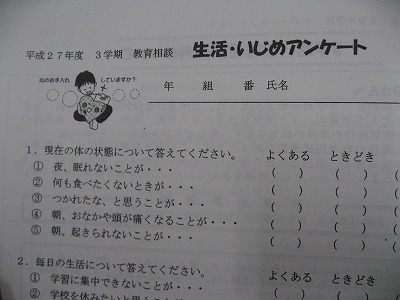 平成27年度　3学期　教育相談　生活・いじめアンケート
心のお手入れ　していますか？
年　組　番　氏名
1．現在の体の状態について答えてください。　よくある　ときどき
①　夜、眠れないことが・・・　(　)　(　)　(
②　何も食べたくないときが・・・　(　)　(　)　(
③　つかれたな、と思うことが・・・　(　)　(　)　(
④　朝、おなかや頭が痛くなることが・・・　(　)　(　)　(
⑤　朝、起きられないことが・・・　(　)　(　)　(
2．毎日の生活について答えてください。　よくある　ときどき
①　学習に集中できないことが・・・　(　)　(　)
②　学校を休みたいと思うことが・・・　(　)　(　)